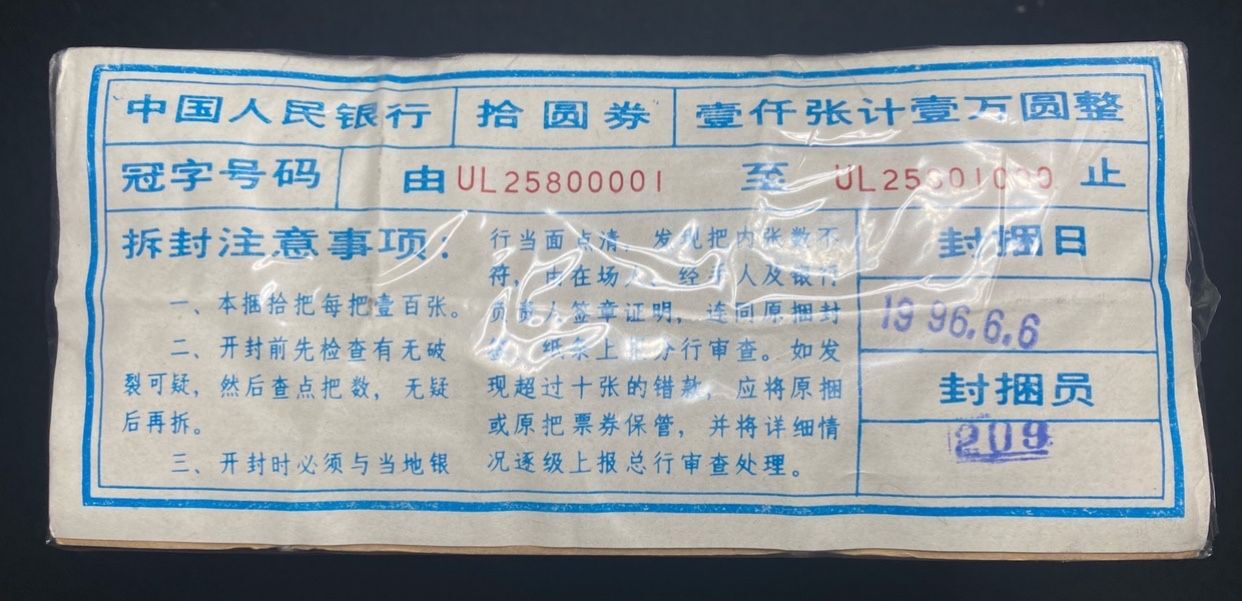 中国人民银行 拾圆券 壹仟张计壹万圆整
冠字号码 由 UL25800001 至 UL25801000 止
拆封注意事项：
一、本捆拾把每把壹百张。
二、开封前先检查有无破
裂可疑，然后查点把数，无疑
后再拆。
三、开封时必须与当地银
行当面点清，发现把内张数不
符，由在场人、经手人及银行
负责人签章证明，连同原捆封
纸条上 分行审查。如发
现超过十张的错款，应将原捆
或原把票券保管，并将详细情
况逐级上报总行审查处理。
封捆日
1996.6.6
封捆员
209